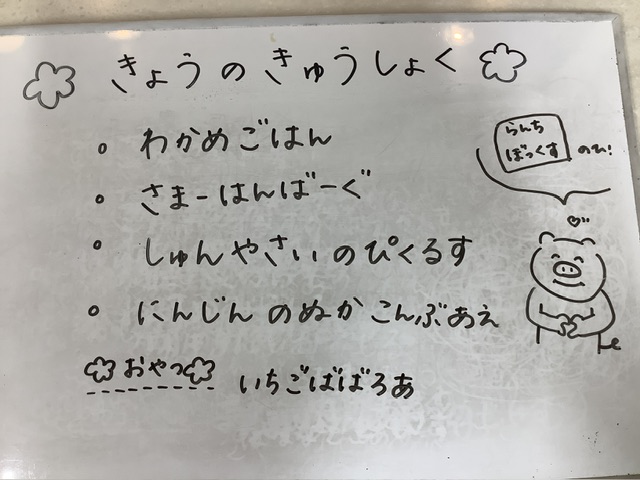 きょうのきゅうしょく
。わかめごはん
。さまーはんばーぐ
。しゅんやさいのぴくるす
。にんじんのぬかこんぶあえ
おやつ いちごばばろあ
らんち
ばっくす のひ!